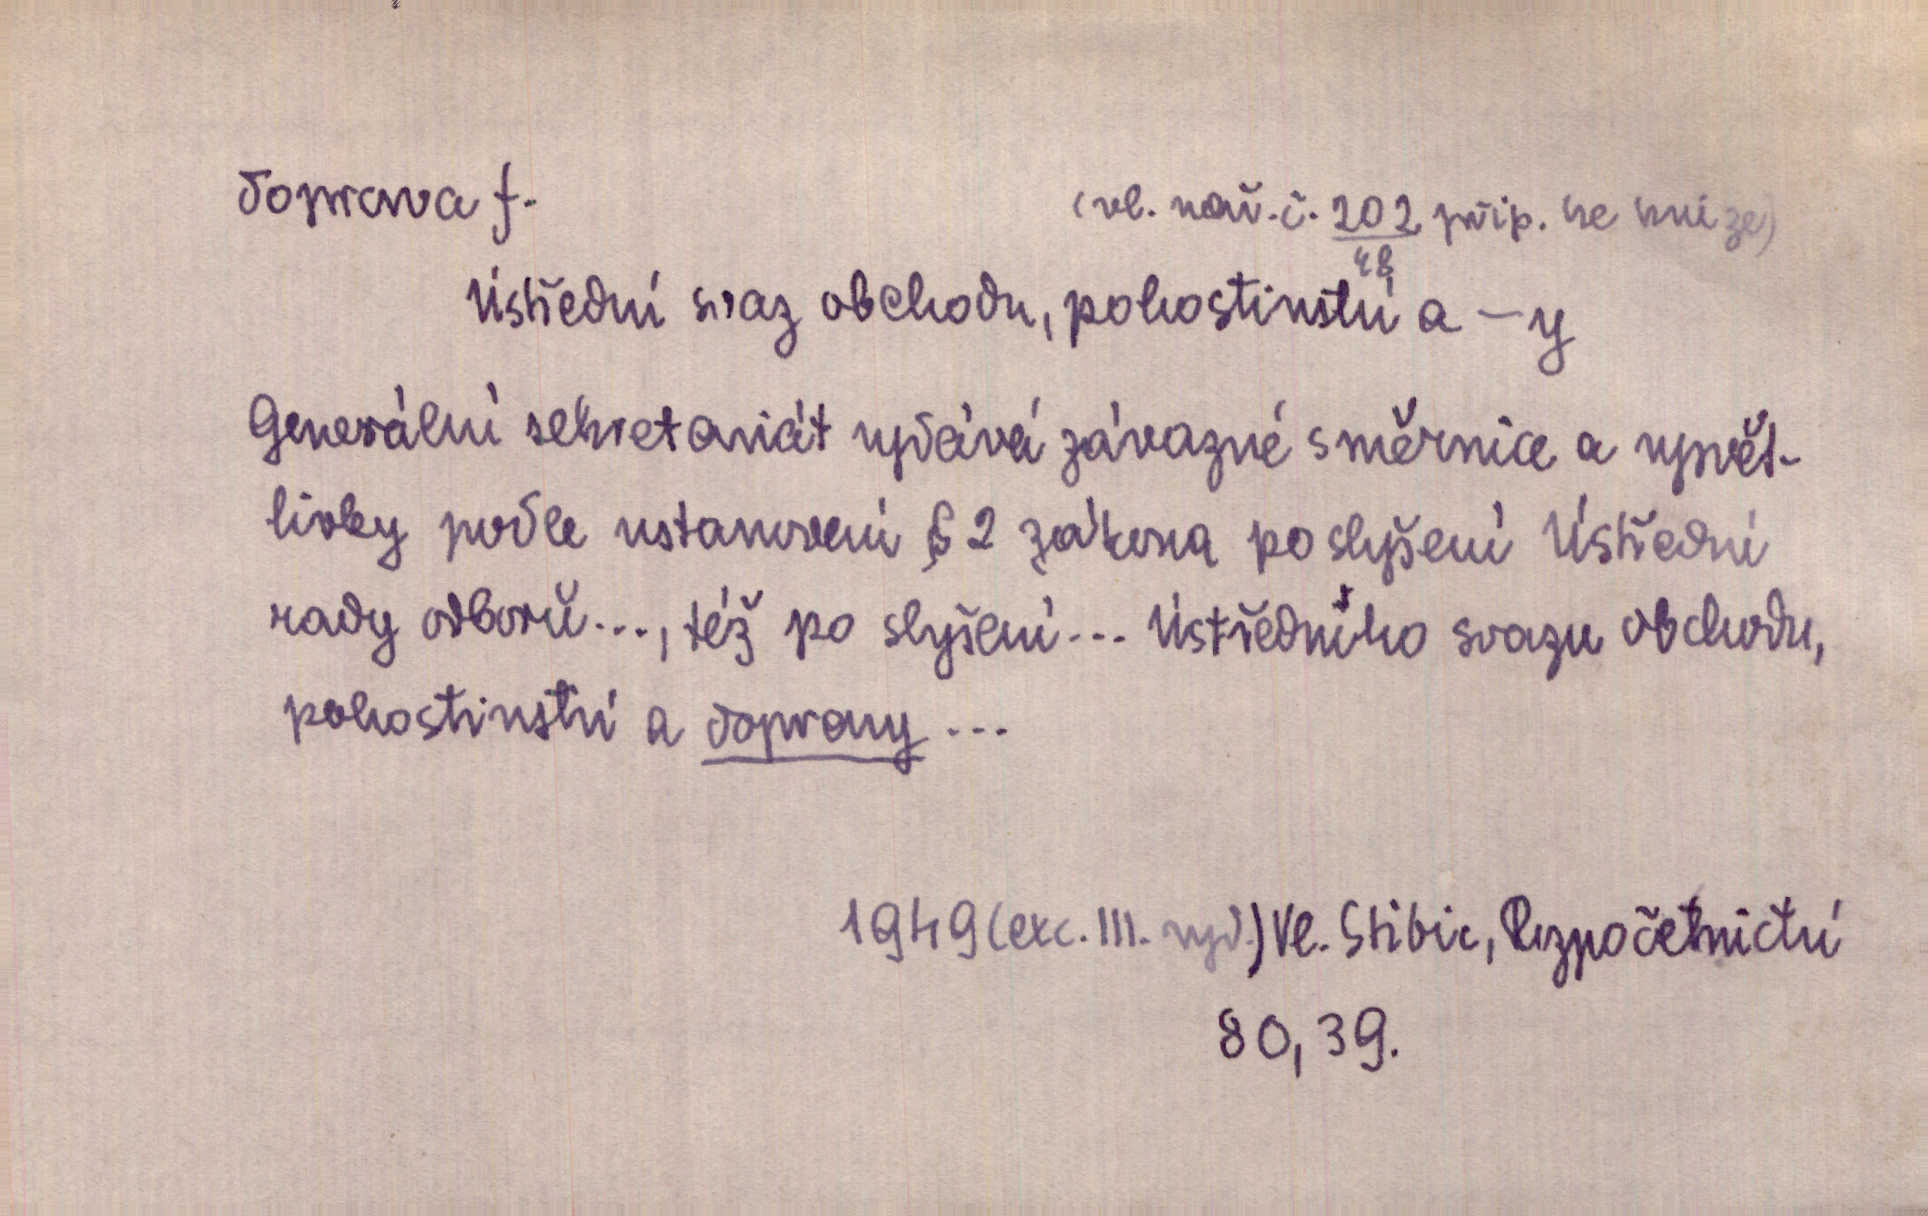 doprava f.
(vl. nař. č. 202 přip. ke knize)
48
Ústřední svaz obchodu, pohostinství a —y
Generální sekretariát vydává závazné směrnice a vysvět-
livky podle ustanovení § 2 zákona po slyšení Ústřední
rady odborů..., též po slyšení... Ústředního svazu obchodu,
pohostinství a dopravy ...
1949 (exc. III. vyd.) Vl. Stibic, Rozpočetnictví
80, 39.